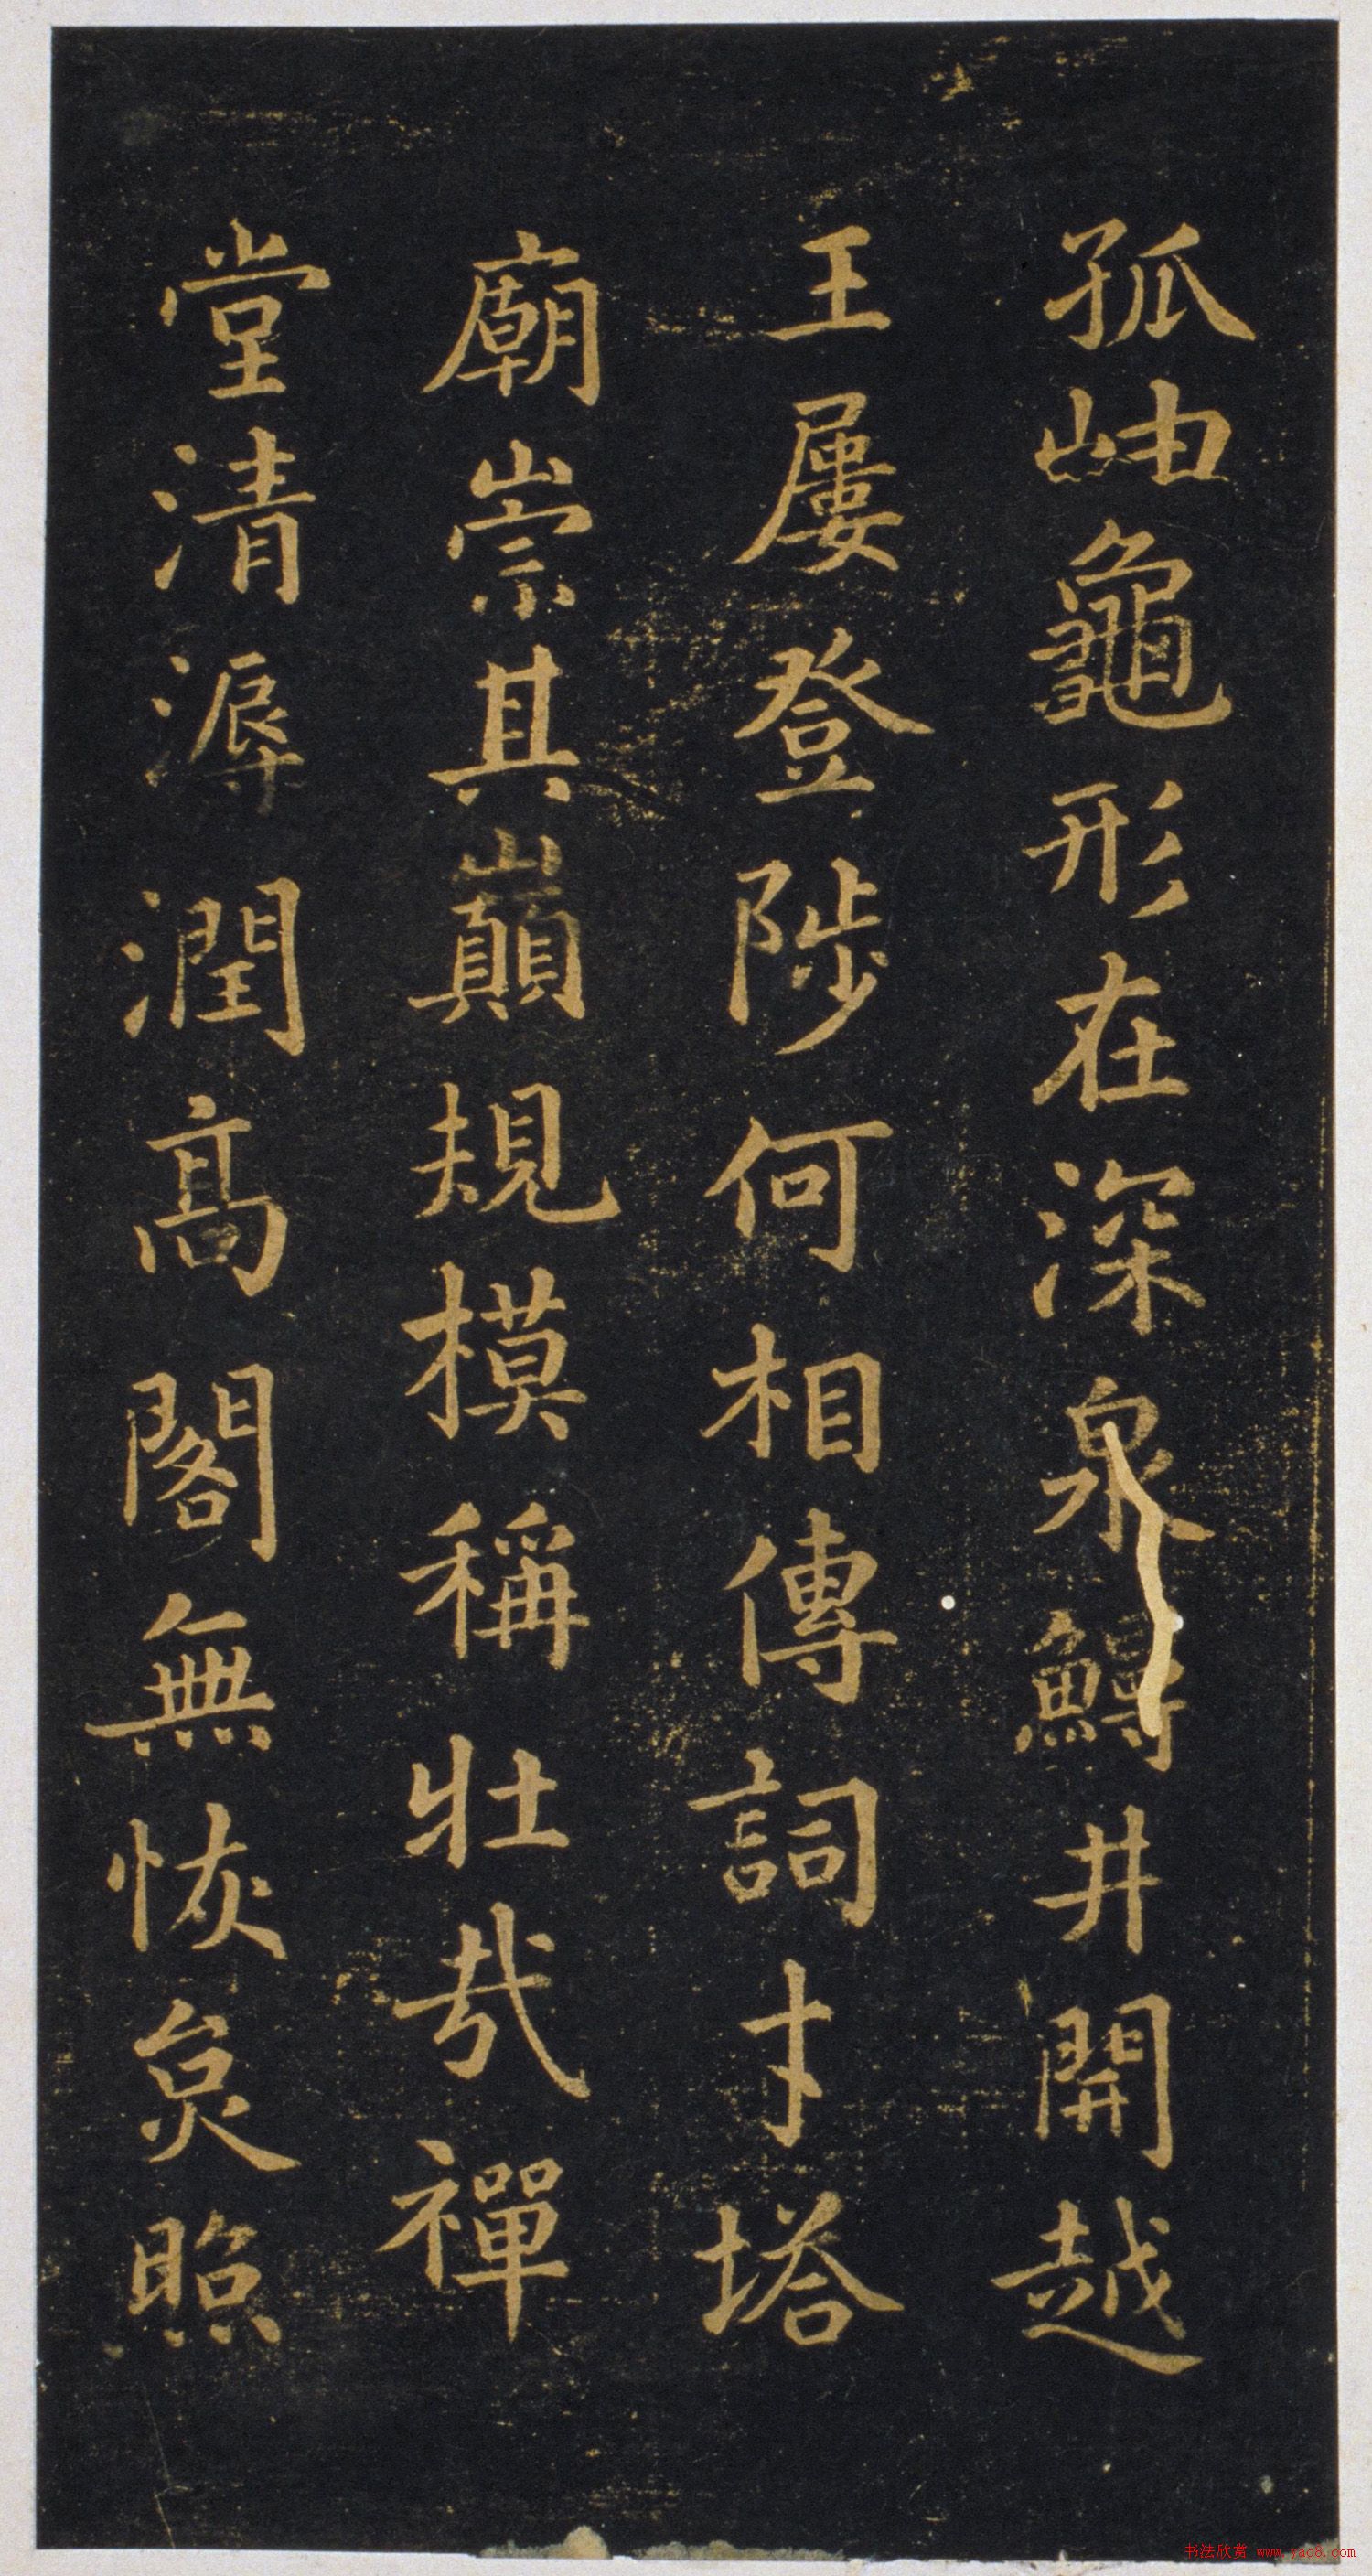 孤岫龜形在深泉鰻井開越
王屢登陟何相傳詞才塔
廟崇其巔規模稱壯哉禪
堂清溽潤高閣無恢炱照
书法欣赏 www.yac8.com